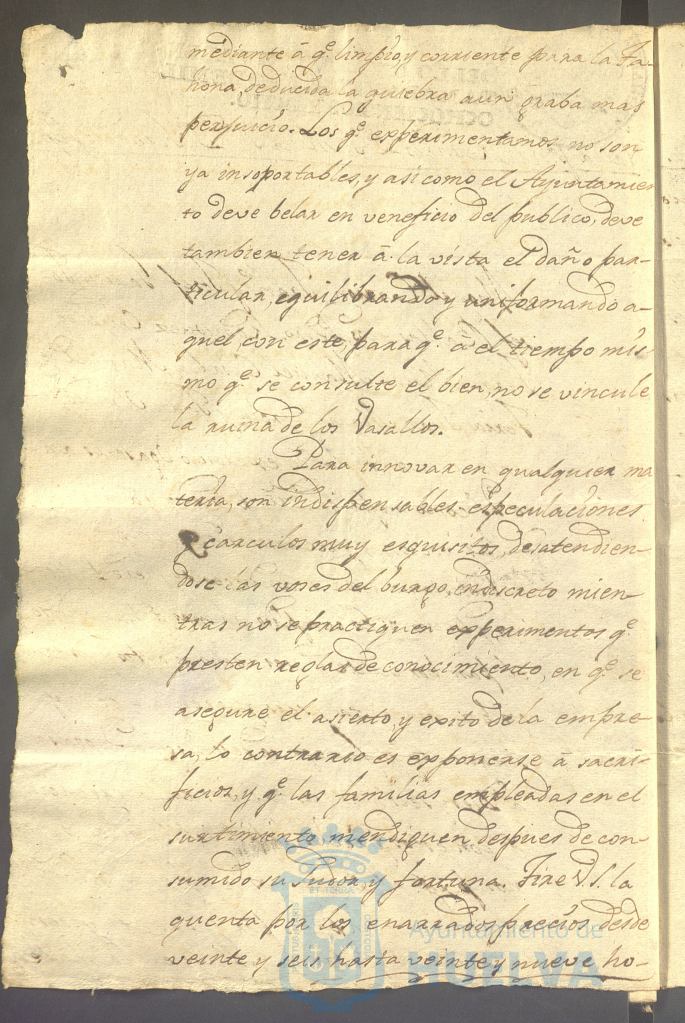 mediante á q.e limpio, y corriente para la Ta-
hona, deducida la quiebra aun graba mas
perjuicio. Los q.e experimentamos no son
ya insoportables, y asi como el Ayuntamien
to deve belar en veneficio del publico, deve
tambien tener á la vista el daño par-
ticular, equilibrando y uniformando a-
quel con este, para q.e a el tiempo mis-
mo q.e se consulte el bien, no se vincule
la ruina de los Vasallos.
Para innovar en qualquier ma
teria, son indispensables especulaciones
y carculos muy esquisitos, desatendien-
dose las voses del burgo, indiscreto mien-
tras no se practiquen experimentos q.e
presten reglas de conocimiento, en q.e se
asegure el asierto, y exito de la empre-
sa, lo contrario es exponerse á sacri-
ficios, y q.e las familias empleadas en el
surtimiento, mendiquen despues de con-
sumido su sudor, y fortuna. Tire V.S. la
quenta por los enarrados precios desde
veinte y seis hasta veinte y nueve ho-
Ayuntamiento de
HUELVA